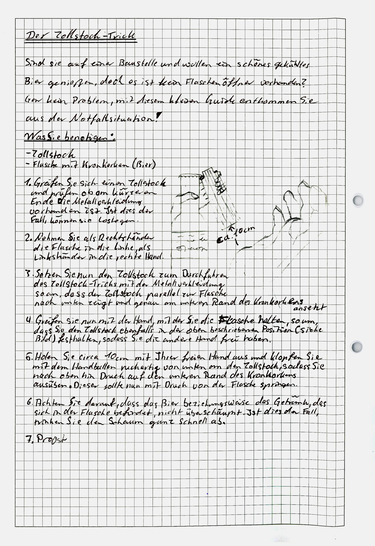 Der Zollstock-Trick
Sind sie auf einer Baustelle und wollen ein schönes gekühltes
Bier genießen, doch es ist kein Flaschenöffner vorhanden?
Gar kein Problem, mit diesem kleinen Guide entkommen Sie
aus der Notfallsituation!
Was Sie benötigen:
- Zollstock
- Flasche mit Kronkorken (Bier)
1. Greifen Sie sich einen Zollstock
und prüfen ob am kürzeren
Ende die Metallverkleidung
vorhanden ist. Ist dies der
Fall, können sie loslegen.
ca. 10cm
2. Nehmen Sie als Rechtshänder
die Flasche in die linke, als
Linkshänder in die rechte Hand.
3. Setzen Sie nun den Zollstock zum Durchführen
des Zollstock-Tricks mit der Metallverkleidung
so an, dass der Zollstock parallel zur Flasche
nach unten zeigt und genau am unteren Rand des Kronkorkens
ansetzt
4. Greifen sie nun mit der Hand, mit der Sie die Flasche halten, so um,
dass Sie den Zollstock ebenfalls in der oben beschriebenen Position (siehe
Bild) festhalten, sodass Sie die andere Hand frei haben.
5. Holen Sie circa 10cm mit Ihrer freien Hand aus und klopfen Sie
mit dem Handballen ruckartig von unten an den Zollstock, sodass Sie
nach oben hin Druck auf den unteren Rand des Kronkorkens
ausüben. Dieser sollte nun mit Druck von der Flasche springen.
6. Achten Sie darauf, dass das Bier beziehungsweise das Getränk, das
sich in der Flasche befindet, nicht überschäumt. Ist dies der Fall,
trinken Sie den Schaum ganz schnell ab.
7. Prost